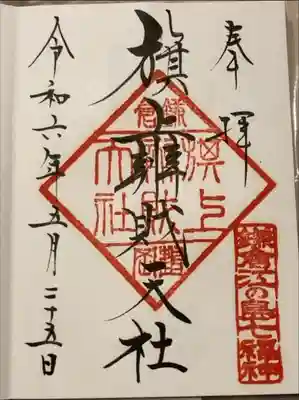 奉拝
旗上弁財天社
令和六年五月二十五日
鎌倉
旗上
大社
鎌倉江の島七福神